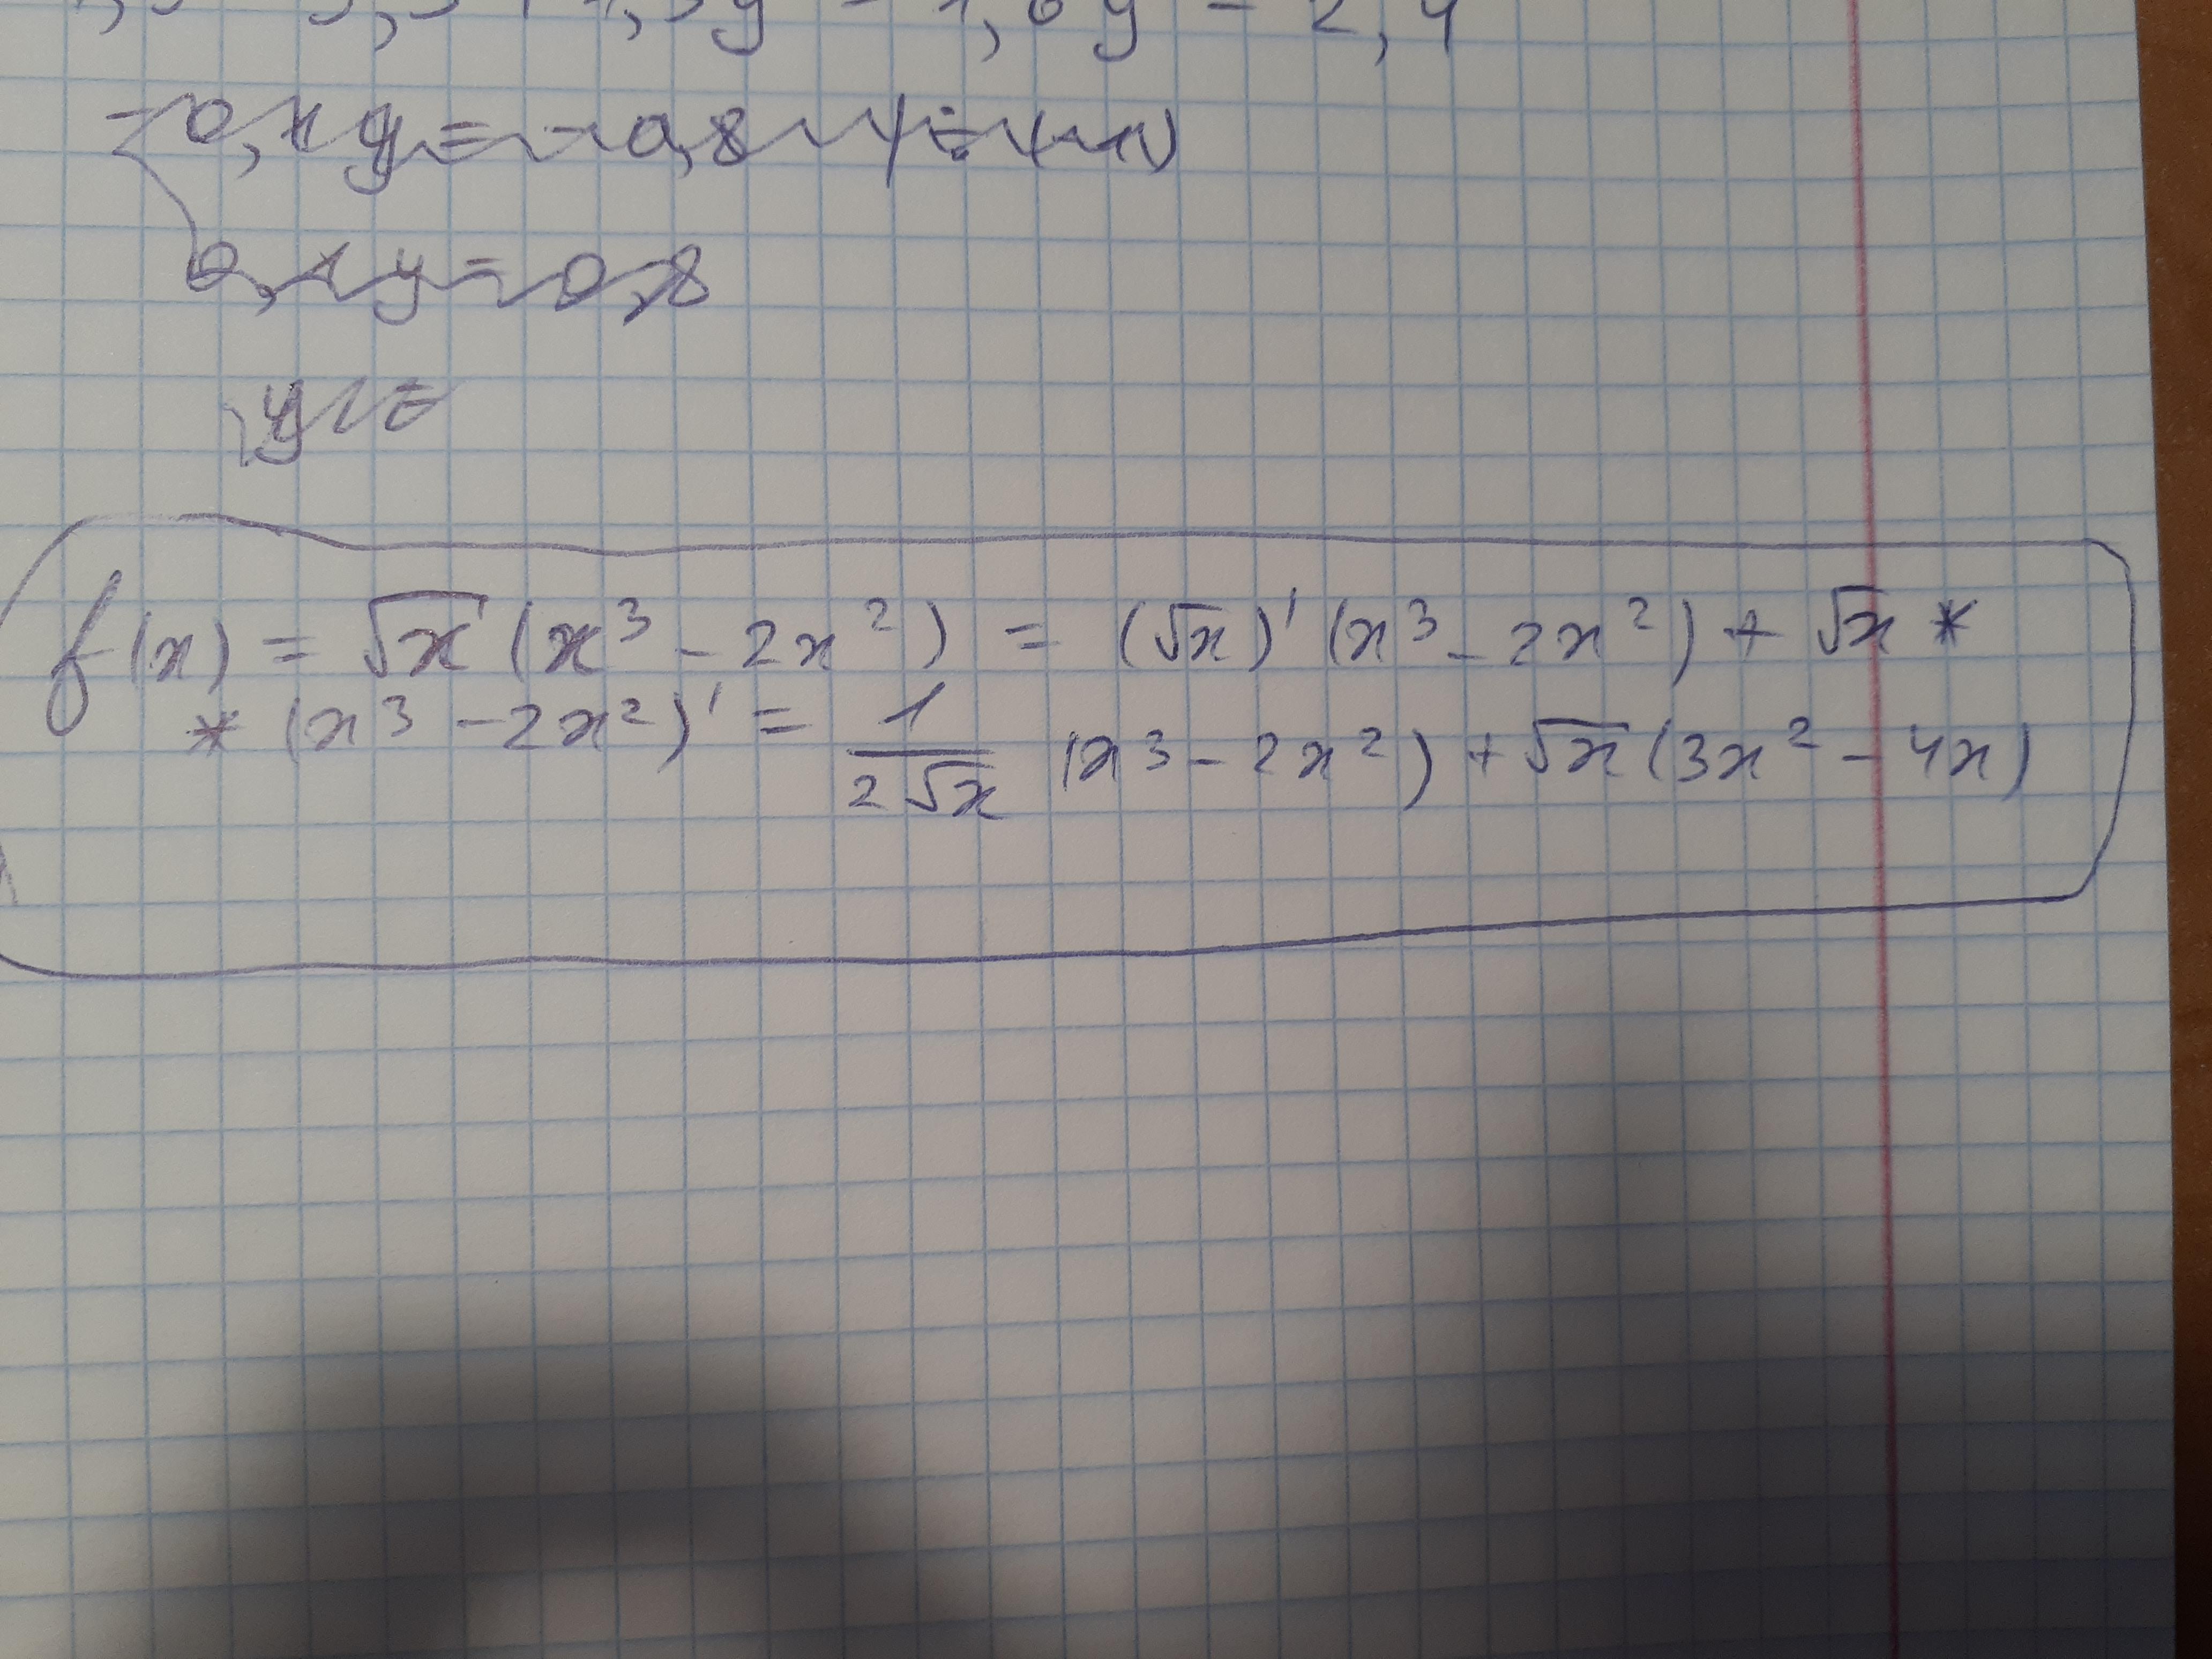 -0,1y = -0,8
0,1y = 0,8
y =
f(x) = √x (x³ - 2x²) = (√x)' (x³ - 2x²) + √x *
* (x³ - 2x²)' = 1/(2√x) (x³ - 2x²) + √x (3x² - 4x)